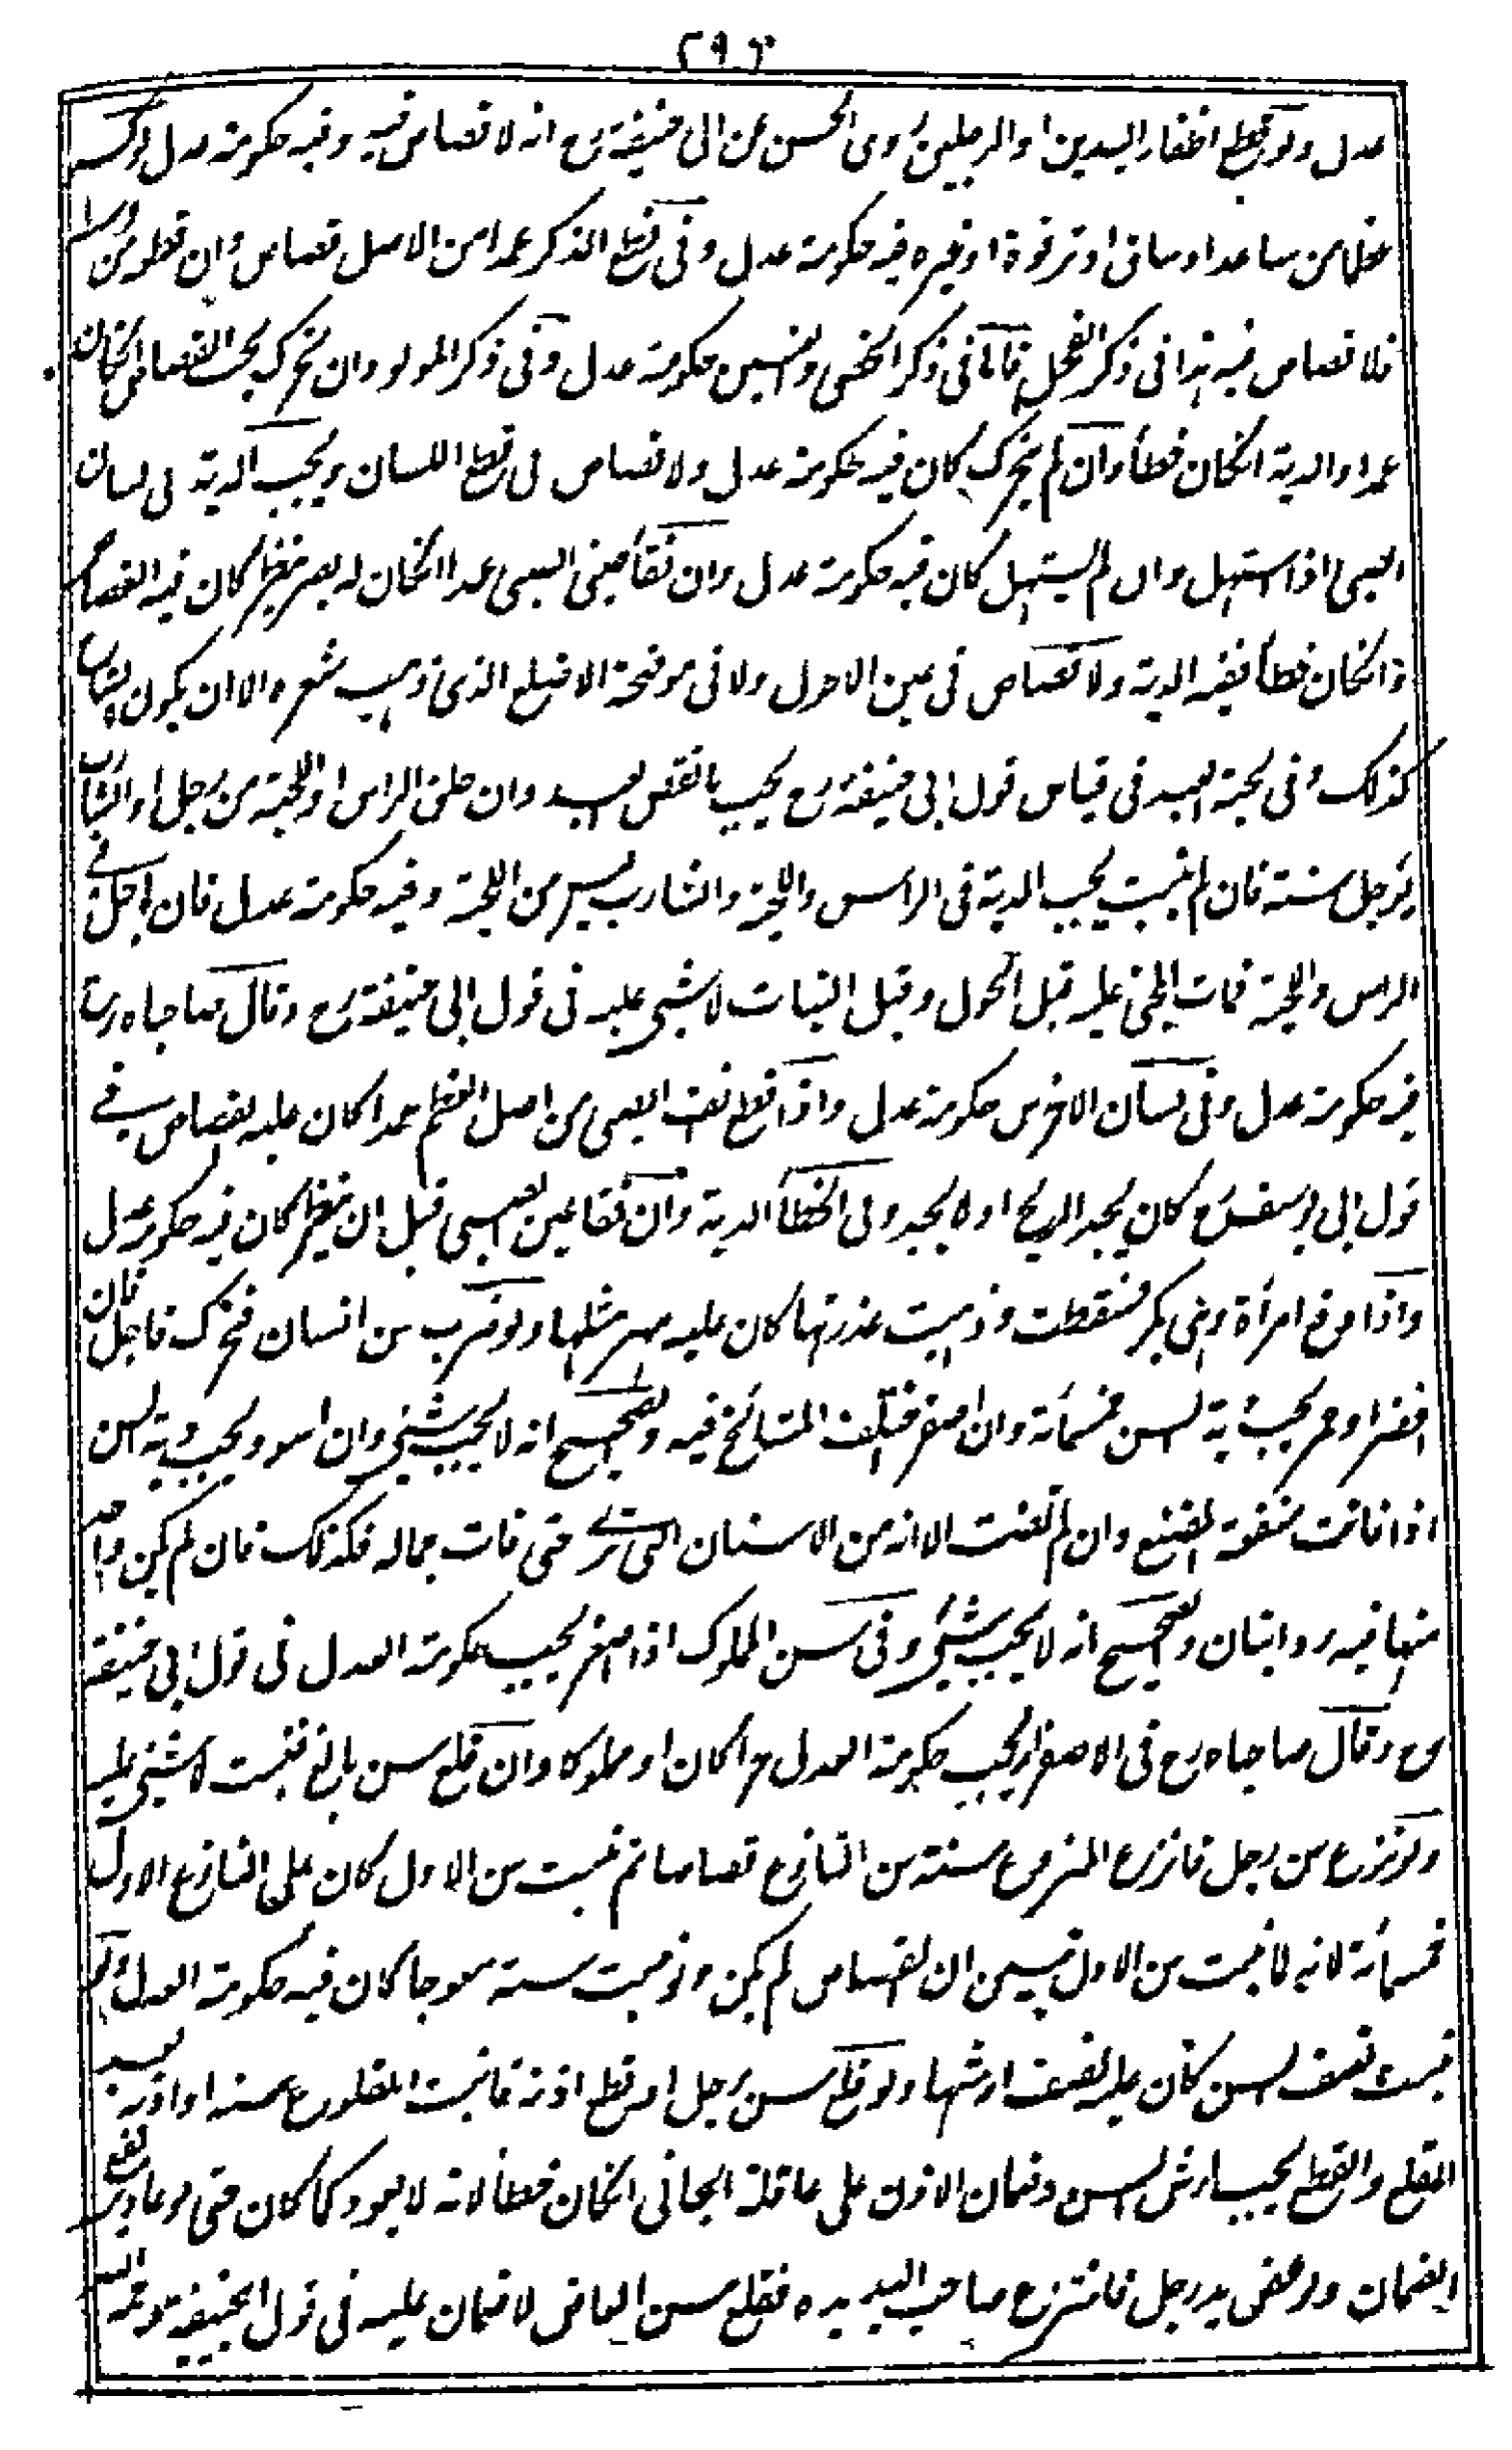 ٢٩٣
عدل ولو قطع اظفار اليدين او الرجلين روى الحسن عن ابى حنيفة رح انه لا قصاص فيه وفيه حكومة عدل ولو كسر
عظما من ساعد او ساق او ترقوة او غيره فيه حكومة عدل وفى قطع الذكر عمدا من الاصل قصاص وان قطع من وسطه
فلا قصاص فيه هذا فى ذكر الفحل فاما فى ذكر الخصى والعنين حكومة عدل وفى ذكر المولود ان تحرك يجب القصاص انكان
عمدا والدية انكان خطأ وان لم يتحرك كان فيه حكومة عدل ولا قصاص فى قطع اللسان ويجب الدية فى لسان
الصبى اذا استهل وان لم يستهل كان فيه حكومة عدل وان فقأ عينى الصبى عمدا انكان له بصر ينظر كان فيه القصاص
وانكان خطأ ففيه الدية ولا قصاص فى عين الاحول ولا فى موضحة الاصلع الذى ذهب شعره الا ان يكون الشاج
كذلك وفى لحية العبد فى قياس قول ابى حنيفة رح يجب ما نقص العبد وان حلق الراس او اللحية من رجل او الشارب
يؤجل سنة فان لم ينبت يجب الدية فى الراس واللحية والشارب ليس من اللحية وفيه حكومة عدل فان اجل فى
الراس واللحية فمات المجنى عليه قبل الحول وقبل النبات لا شىء عليه فى قول ابى حنيفة رح وقال صاحباه رح
فيه حكومة عدل وفى لسان الاخرس حكومة عدل واذا قطع انف الصبى من اصل العظم عمدا كان عليه القصاص فى
قول ابى يوسف رح كان يجد الريح او لا يجد وفى الخطأ الدية وان فقأ عين الصبى قبل ان ينظر كان فيه حكومة عدل
واذا دفع امرأة وهى بكر فسقطت وذهبت عذرتها كان عليه مهر مثلها ولو ضرب سن انسان فتحرك فاجل فان
اخضر او احمر يجب دية السن خمسمائة وان اصفر اختلف المشائخ فيه والصحيح انه لا يجب شىء وان اسود يجب دية السن
اذا فاتت منفعة المضغ وان لم تفت الا انه من الاسنان التى ترى حتى فات جماله فكذلك فان لم يكن واحد
منهما فيه روايتان والصحيح انه لا يجب شىء وفى سن المملوك اذا اصفر يجب حكومة العدل فى قول ابى حنيفة
رح وقال صاحباه رح فى الاصفرار يجب حكومة العدل حرا كان او مملوكا وان قلع سن بالغ فنبت لا شىء عليه
ولو نزع سن رجل فانتزع المنزوع سنه سن النازع قصاصا ثم نبت سن الاول كان على النازع الاول
خمسمائة لانه لما نبت سن الاول تبين ان القصاص لم يكن ولو نبت سنه معوجا كان فيه حكومة العدل ولو
نبت نصف السن كان عليه نصف ارشها ولو قلع سن رجل او قطع اذنه فاثبت المقلوع سنه او اذنه بعد
القلع والقطع يجب ارش السن وضمان الاذن على عاقلة الجانى انكان خطأ لانه لا يعود كما كان حتى لو عاد يرتفع
الضمان ولو عض يد رجل فانتزع صاحب اليد يده فقلع سن العاض لا ضمان عليه فى قول ابيحنيفة رح